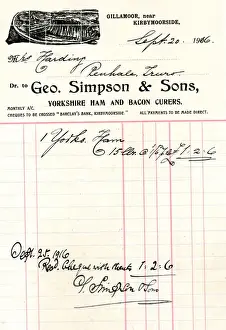 GILLAMOOR, near
KIRBYMOORSIDE,
Sept. 20. 1916
Mrs Harding
Penhale, Truro
Dr. to Geo. Simpson & Sons,
YORKSHIRE HAM AND BACON CURERS.
MONTHLY A/C.
CHEQUES TO BE CROSSED "BARCLAY'S BANK, KIRBYMOORSIDE." ALL PAYMENTS TO BE MADE DIRECT.
1 Yorks. Ham
15 lbs @ 1/6 £ 1-2-6
Sept. 25. 1916
Recd Cheque with thanks 1-2-6
G. Simpson & Sons